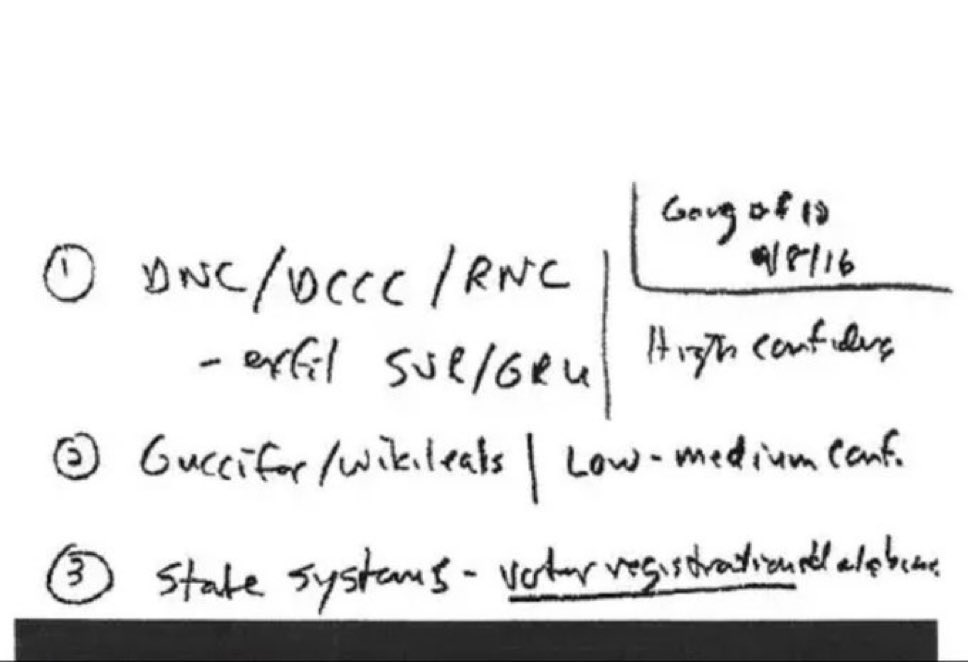 Gang of 12
9/8/16
① DNC/DCCC/RNC
- exfil SVR/GRU
High confidence
② Guccifer/wikileaks | Low-medium conf.
③ State systems - voter registration database